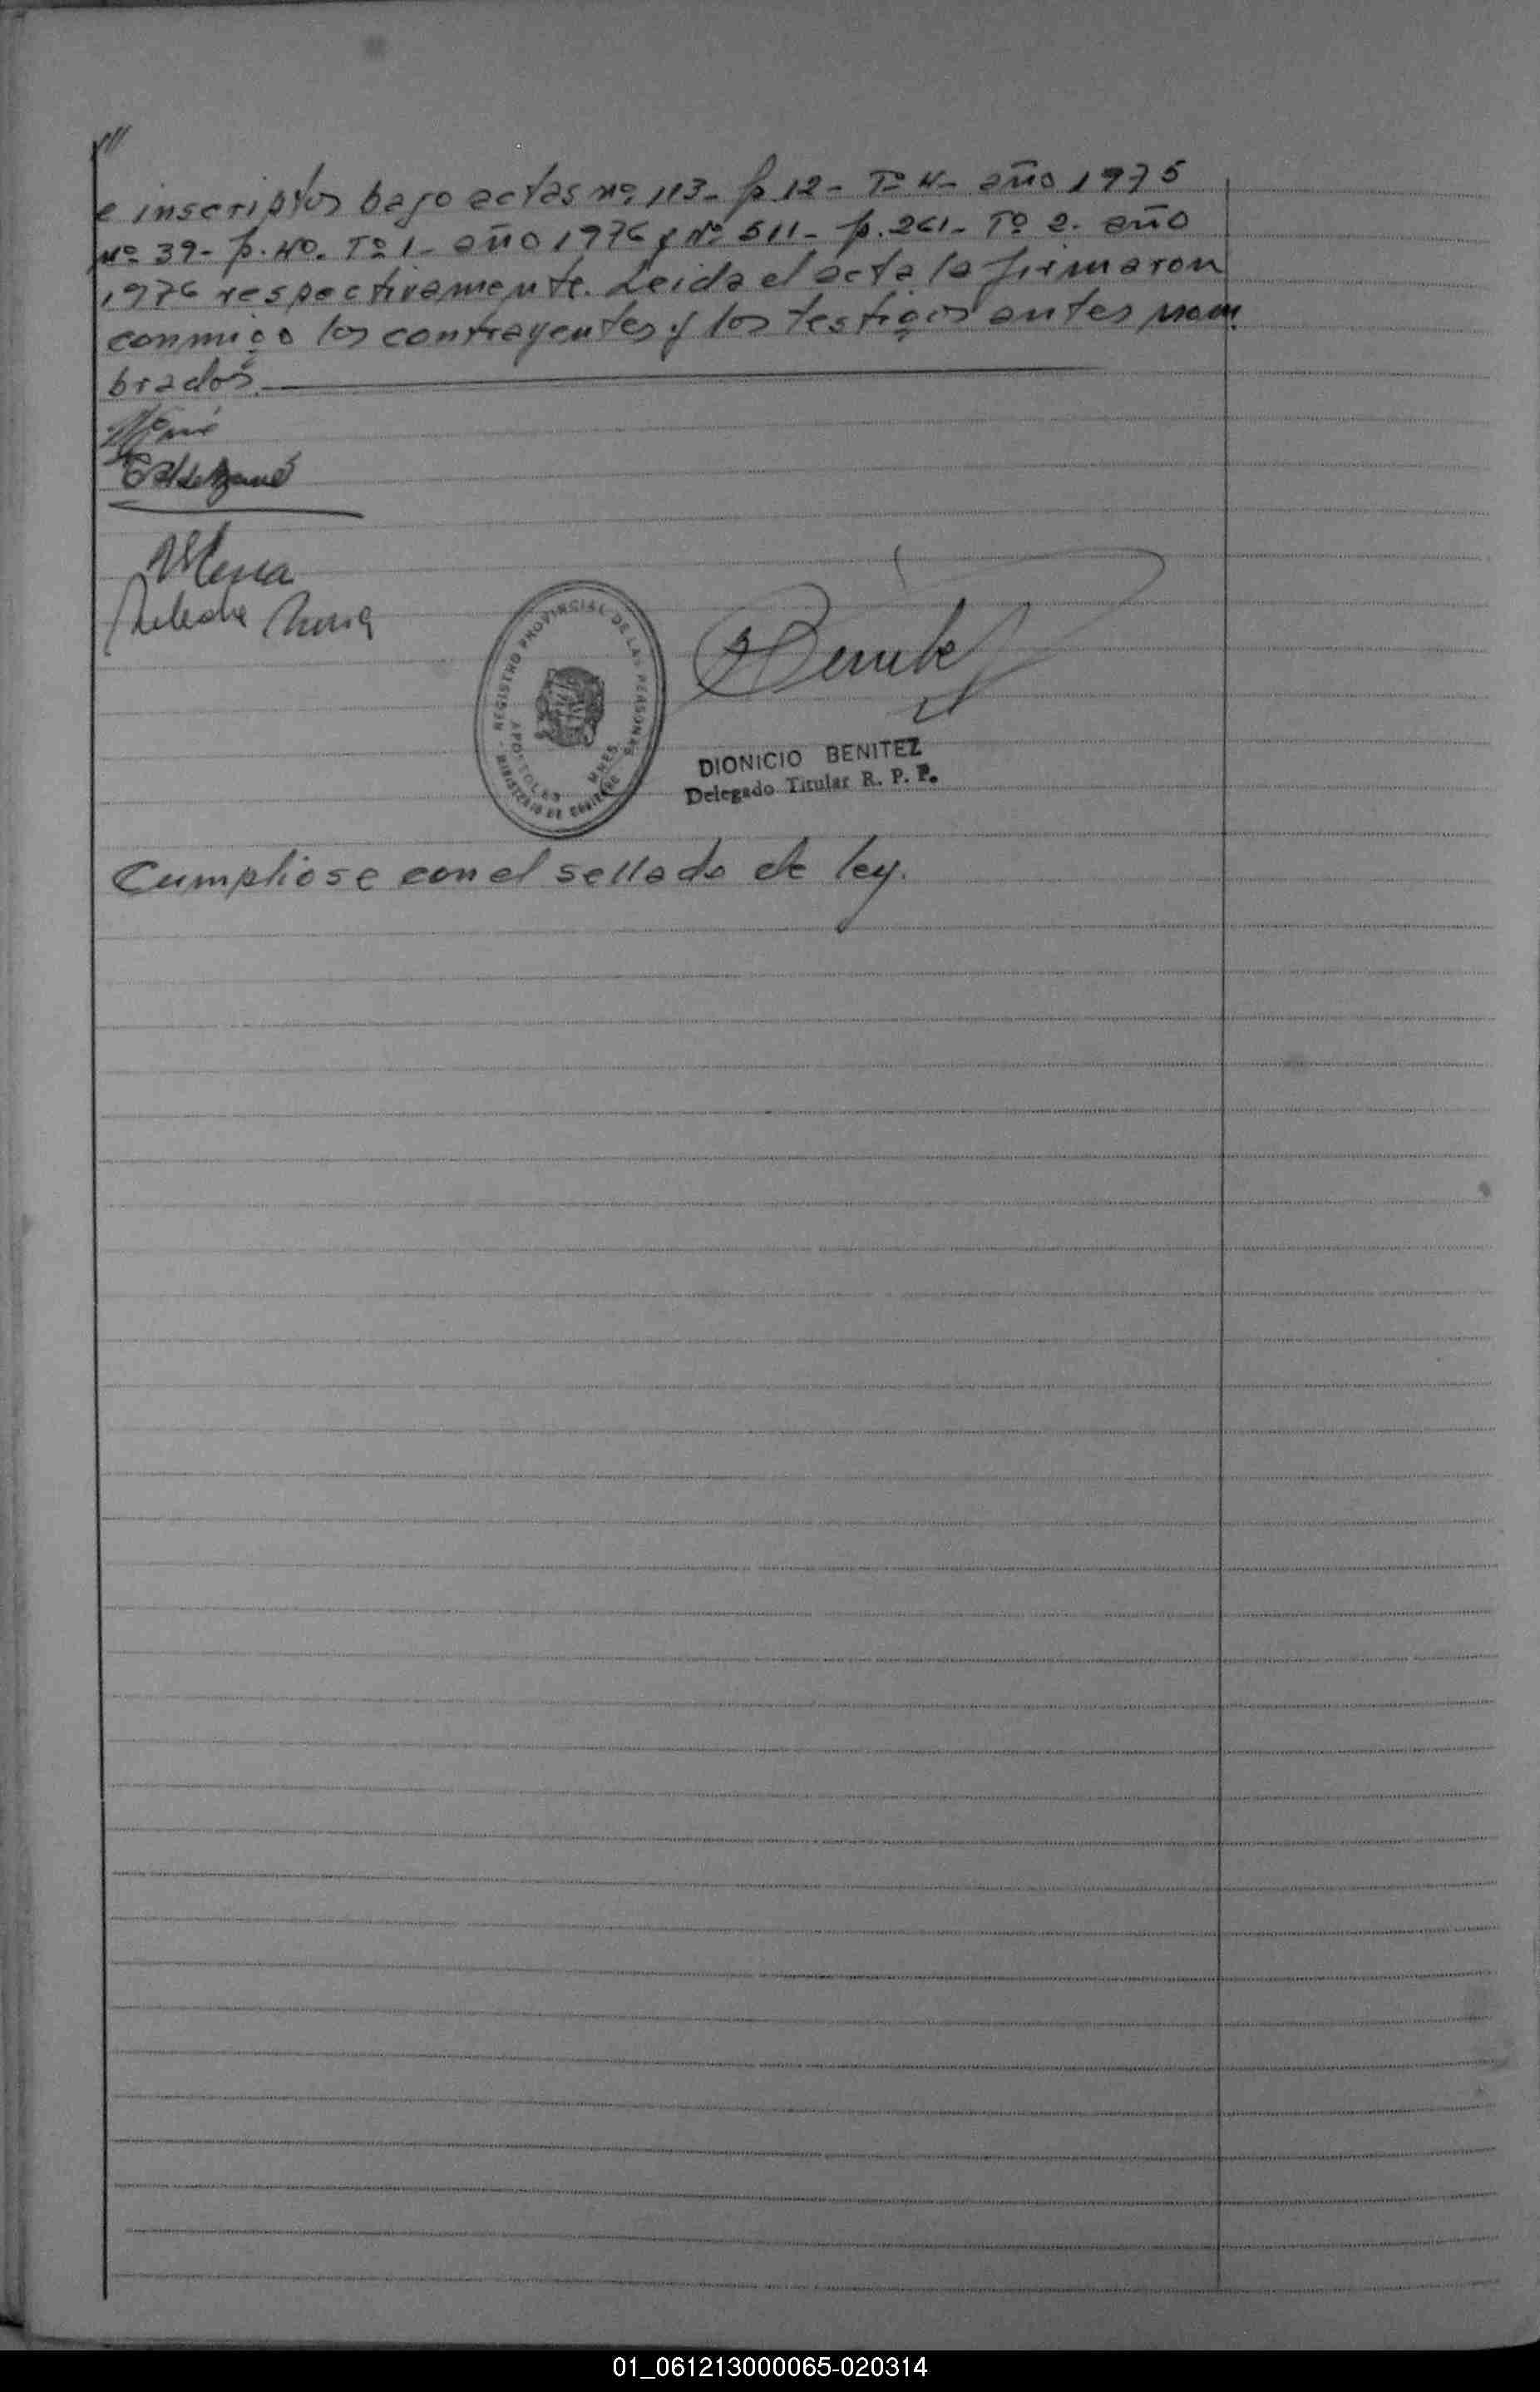 ///
e inscriptos bajo actas nº 113- p 12- Tº 4- año 1975
Nº 39- p. 40. Tº 1- año 1976 y Nº 511- p. 261- Tº 2. año
1976 respectivamente. Leida el acta la firmaron
conmigo los contrayentes y los testigos antes nom
brados.
REGISTRO PROVINCIAL DE LAS PERSONAS
MINISTERIO DE GOBIERNO
APOSTOLES MNES
Benitez
DIONICIO BENITEZ
Delegado Titular R. P. P.
Cumpliose con el sellado de ley.
01_061213000065-020314